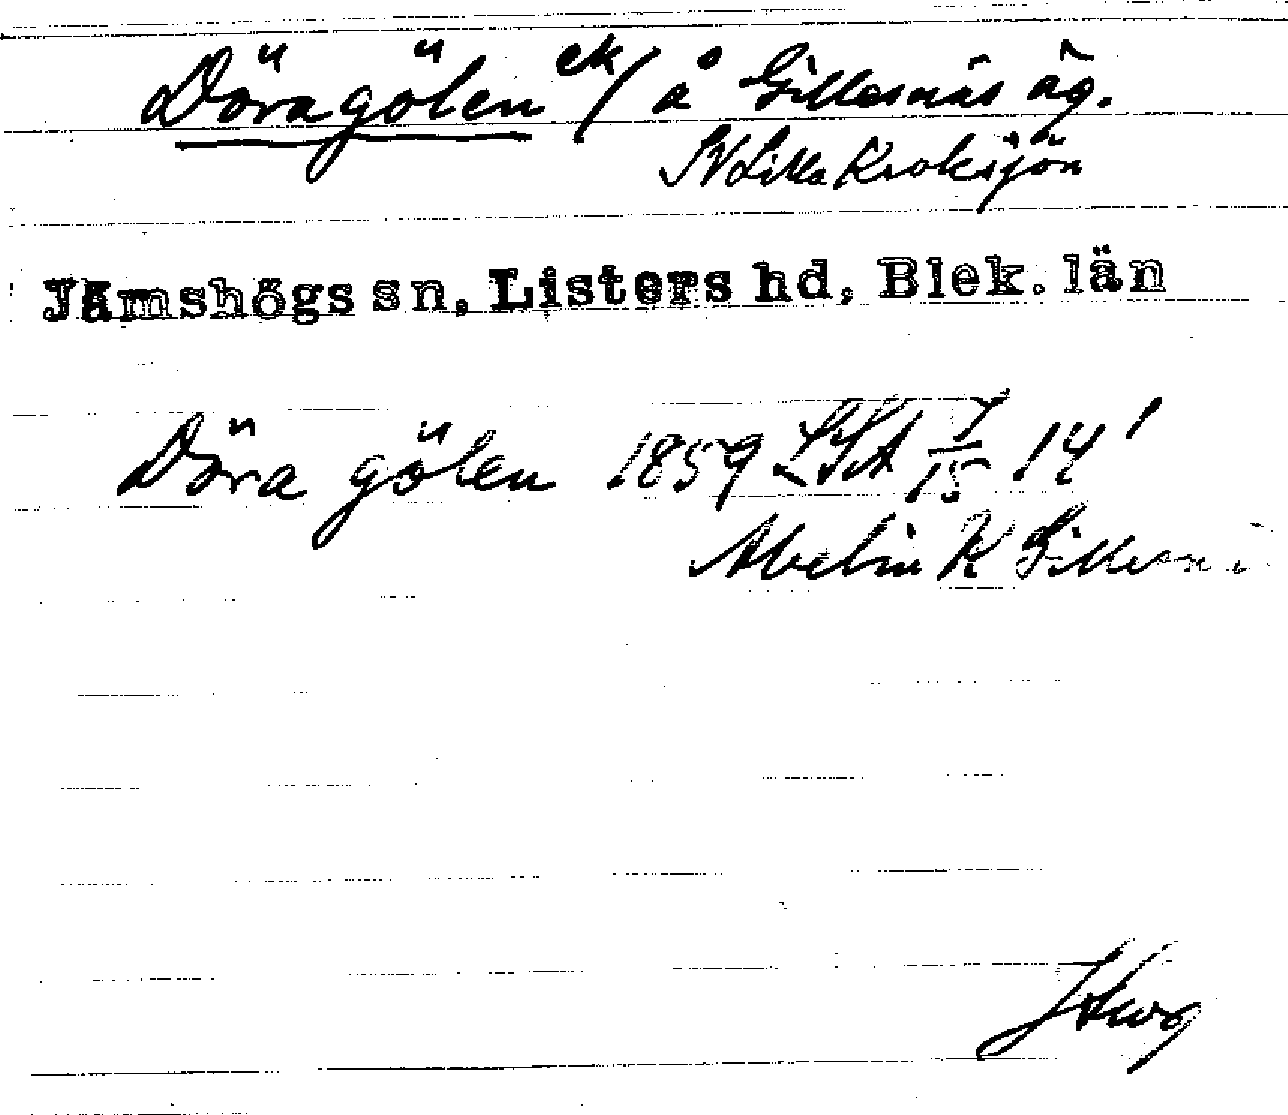 Döragölen ek/ å Gillesnäs äg.
SV Lilla Kroksjön
Jämshögs sn, Listers hd, Blek. län
Döra gölen 1859 LSA 7/15 14'
Abelin K Gillesnä